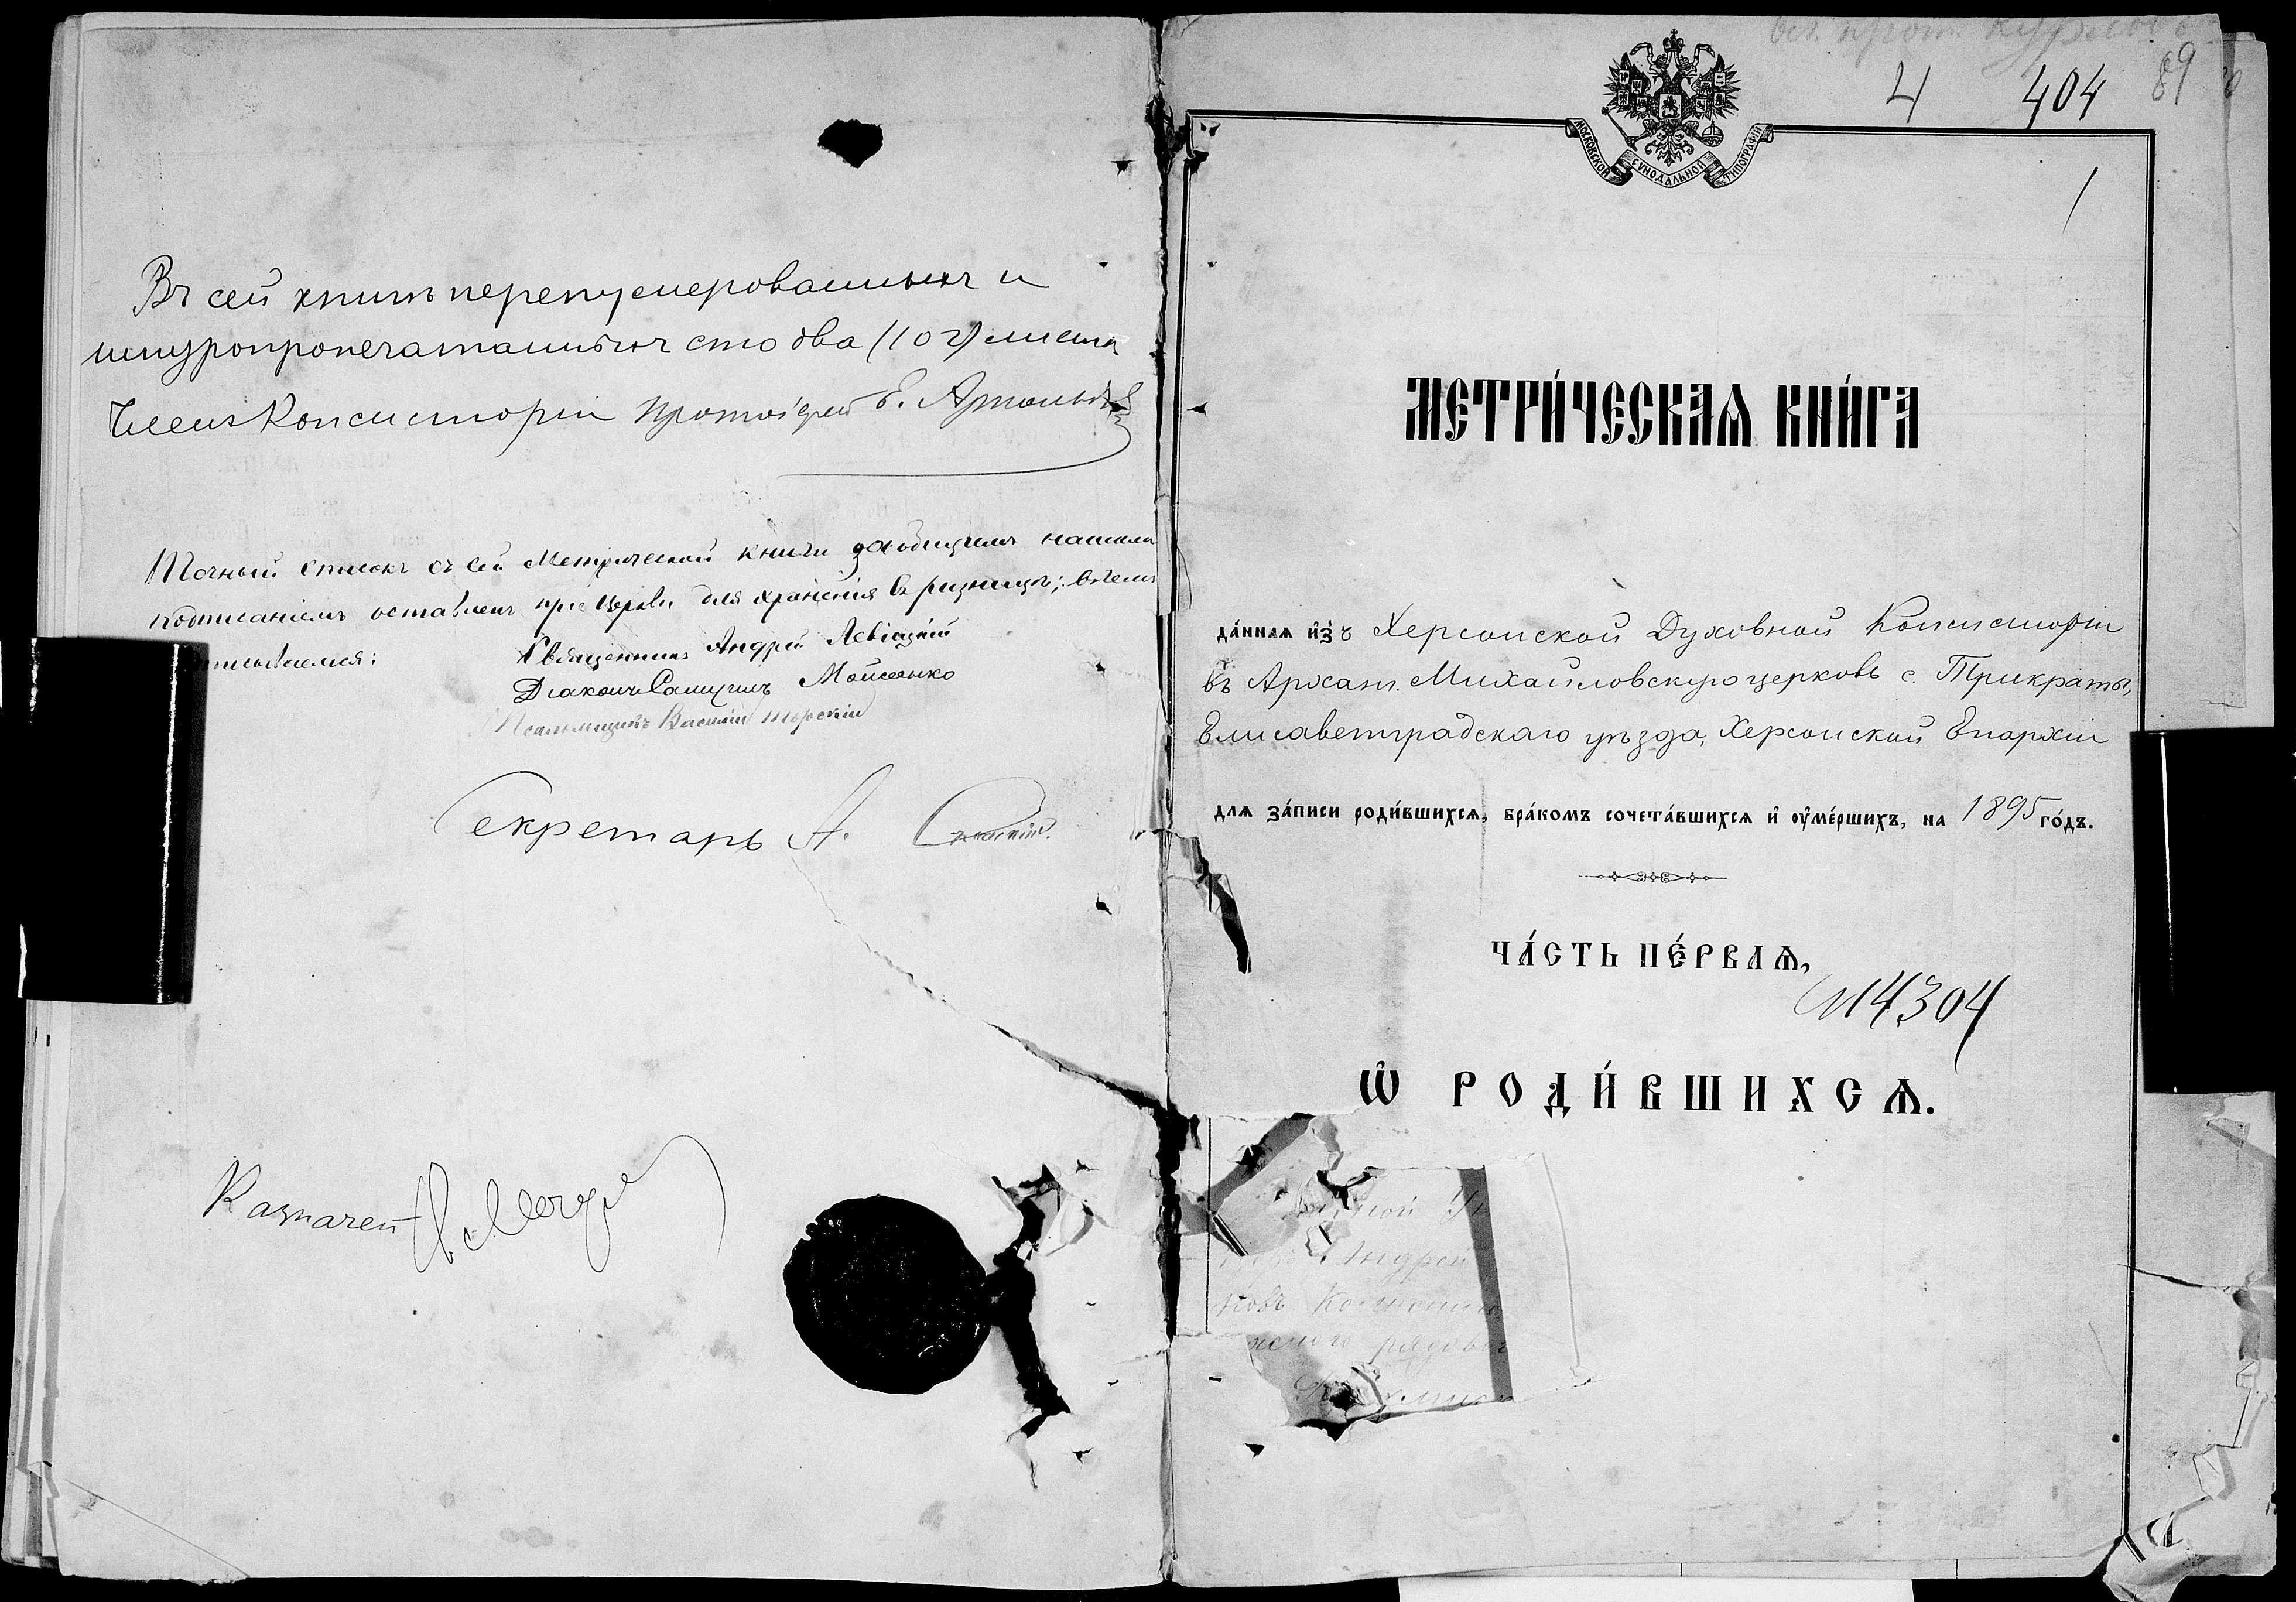 Въ сей книгѣ перенумерованныхъ и
шнуропропечатанныхъ сто два (102) листа
Членъ Консисторіи Протоіерей Е.
Точный списокъ съ сей Метрической книги за общимъ нашимъ
подписаніемъ оставленъ при Церкви для храненія въ ризницѣ; въ чемъ
Священникъ Андрей Левицкій
Діаконъ Самуилъ Мойсеенко
Псаломщикъ Василій
Секретарь А.
Казначей
4 404 89
МОСКОВСКОЙ СѴНОДАЛЬНОЙ ТИПОГРАФІИ
1
МЕТРИ́ЧЕСКАѦ КНИ́ГА
да́ннаѧ и҆зъ Херсонской Духовной Консисторіи
въ Архан. Михайловскую церковь с. Трикраты,
Елисаветградскаго уѣзда, Херсонской Епархіи
длѧ за́писи роди́вшихсѧ, бра́комъ сочета́вшихсѧ и҆ ᲂу҆ме́ршихъ, на 1895 го́дъ.
ЧА́СТЬ ПЕ́РВАѦ,
14304
Ѽ РОДИ́ВШИХСѦ.
Андрей
рядов